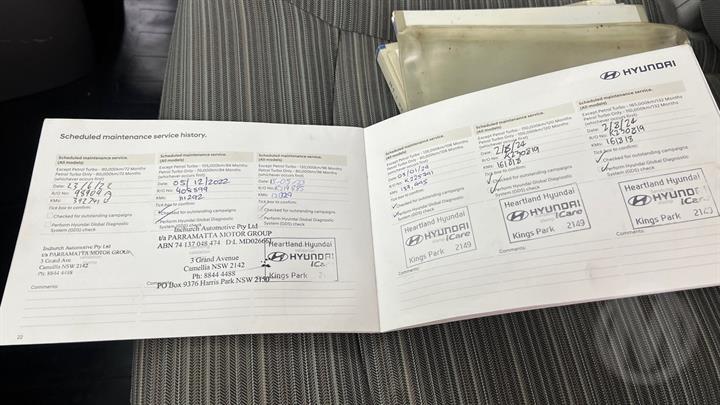 Scheduled maintenance service history.
Scheduled maintenance service.
(All models)
Except Petrol Turbo - 90,000km/72 Months
Petrol Turbo Only -
(whichever occurs first)
Date:
R/O No:
KMs:
Tick box to confirm:
Checked for outstanding campaigns
Perform Hyundai Global Diagnostic
System (GDS) check
Inchurch Automotive Pty Ltd
t/a PARRAMATTA MOTOR GROUP
3 Grand Ave
Camellia NSW 2142
Ph: 8844 4488
Comments:
22
Scheduled maintenance service.
(All models)
Except Petrol Turbo - 105,000km/84 Months
(whichever occurs first)
Date: 05/12/2022
R/O No: 408599
KMs:
Tick box to confirm:
Checked for outstanding campaigns
Perform Hyundai Global Diagnostic
System (GDS) check
Inchurch Automotive Pty Ltd
t/a PARRAMATTA MOTOR GROUP
ABN 74 137 048 474 D L MD026651
3 Grand Avenue
Camellia NSW 2142
Ph: 8844 4488
PO Box 9376 Harris Park NSW 2150
Comments:
Scheduled maintenance service.
(All models)
(whichever occurs first)
Date:
R/O No:
KMs:
Tick box to confirm:
Checked for outstanding campaigns
Perform Hyundai Global Diagnostic
System (GDS) check
Heartland Hyundai
HYUNDAI
iCare
Kings Park
Comments:
HYUNDAI
Scheduled maintenance service.
(All models)
(whichever occurs first)
Date: 09/01/24
R/O No:
KMs:
Tick box to confirm:
Checked for outstanding campaigns
Perform Hyundai Global Diagnostic
System (GDS) check
Heartland Hyundai
HYUNDAI
iCare
Kings Park 2149
Comments:
Scheduled maintenance service.
(All models)
Except Petrol Turbo - 150,000km/120 Months
(whichever occurs first)
Date: 2/8/24
R/O No: R230819
KMs: 161818
Tick box to confirm:
Checked for outstanding campaigns
Perform Hyundai Global Diagnostic
System (GDS) check
Heartland Hyundai
HYUNDAI
iCare
Kings Park 2149
Comments:
Scheduled maintenance service.
(All models)
Except Petrol Turbo - 165,000km/132 Months
Petrol Turbo Only - 110,000km/132 Months
(whichever occurs first)
Date: 2/8/24
R/O No: R230819
KMs: 161818
Tick box to confirm:
Checked for outstanding campaigns
Perform Hyundai Global Diagnostic
System (GDS) check
Heartland Hyundai
HYUNDAI
iCare
Kings Park 2149
Comments: